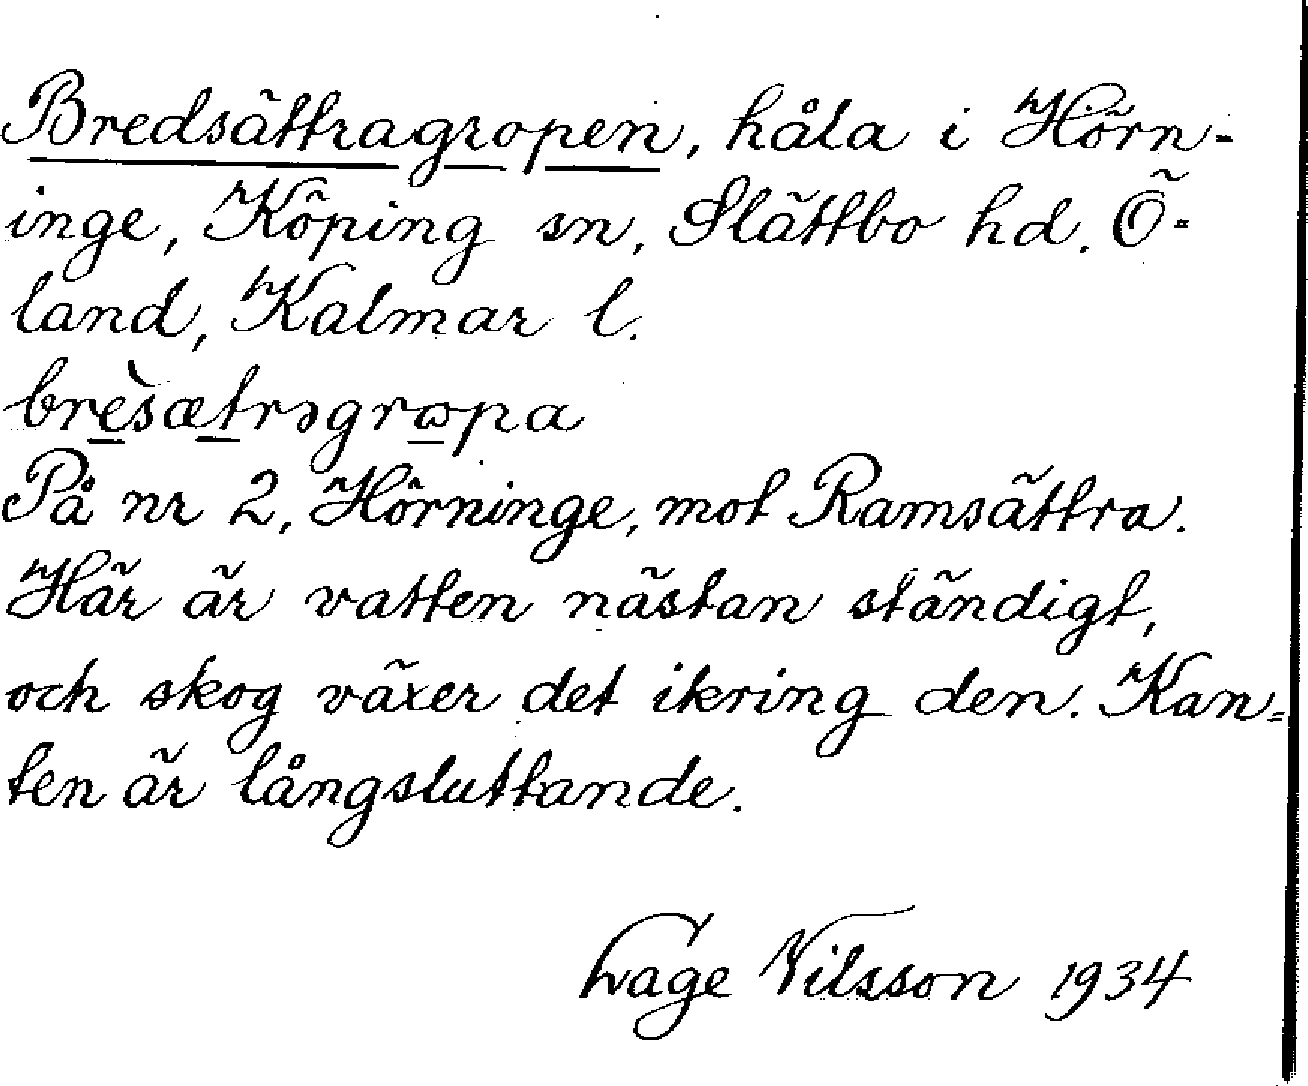 Bredsättragropen, håla i Hörn-
inge, Köping sn, Slättbo hd. Ö-
land, Kalmar l.
brè̠sæt̠rɔgrɷ̠pa
På nr 2, Hörninge, mot Ramsättra.
Här är vatten nästan ständigt,
och skog växer det ikring den. Kan-
ten är långsluttande.
Lage Nilsson 1934